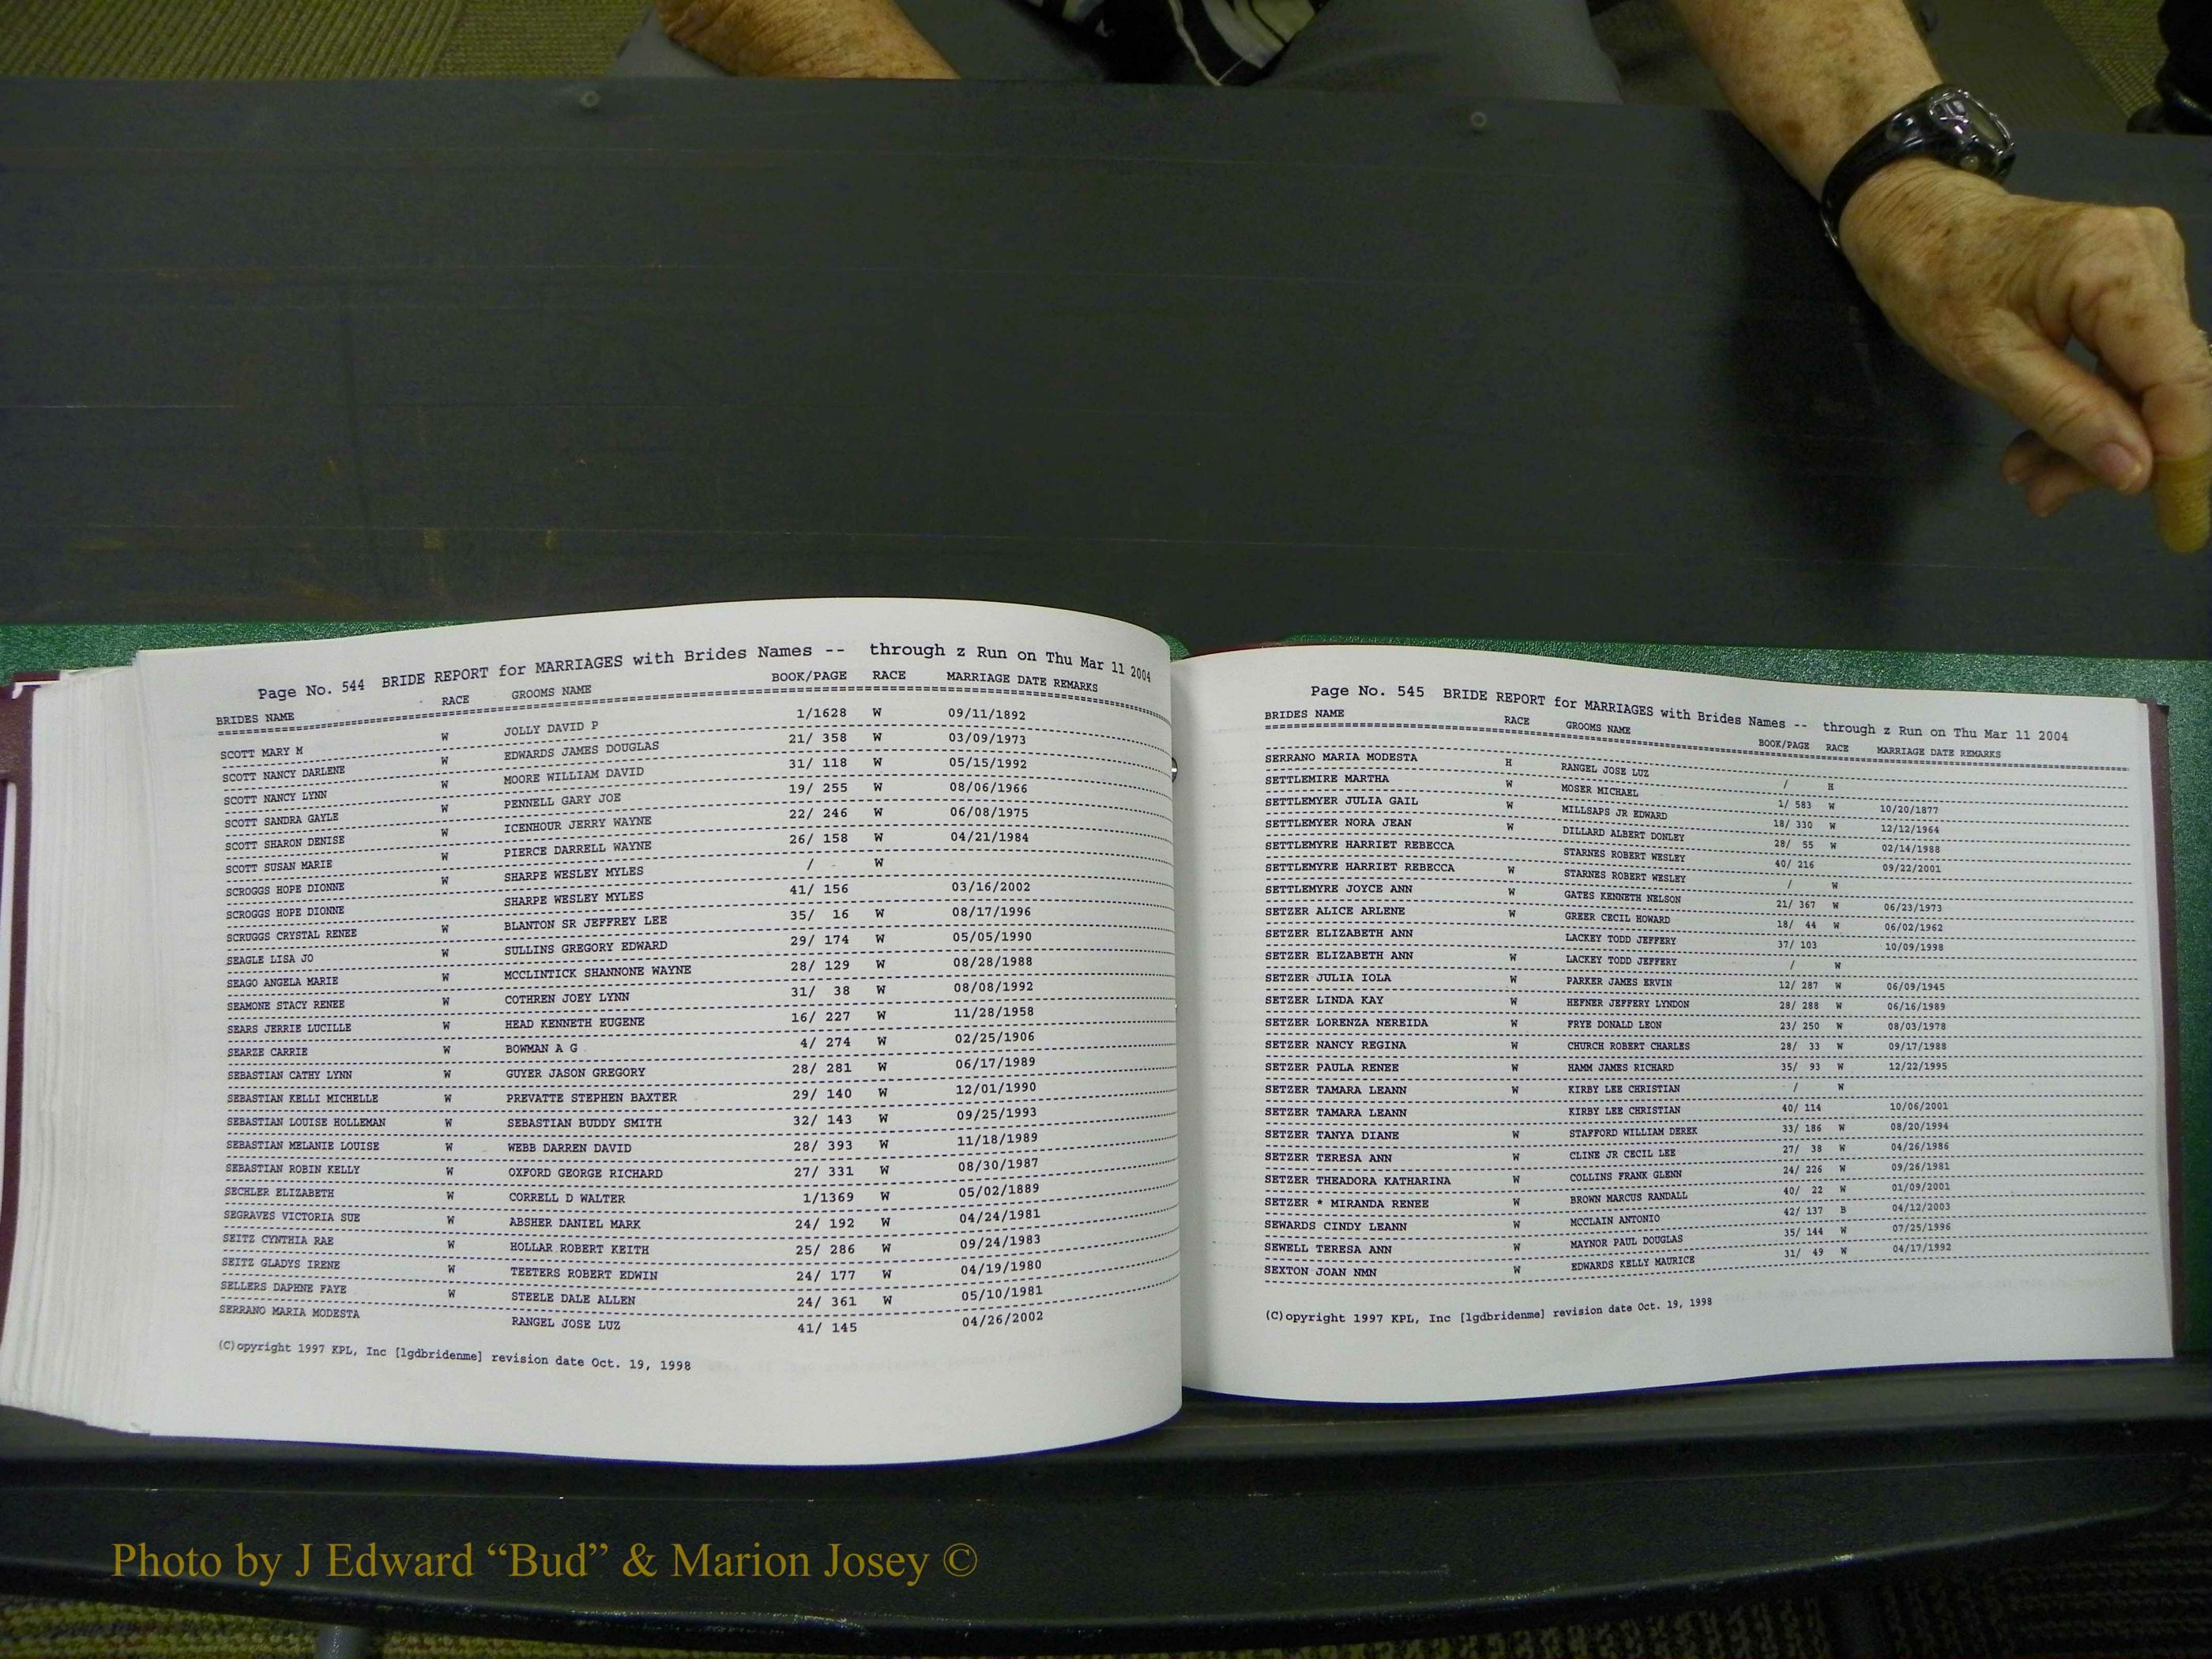 Page No. 544 BRIDE REPORT for MARRIAGES with Brides Names -- through z Run on Thu Mar 11 2004
BRIDES NAME RACE GROOMS NAME BOOK/PAGE RACE MARRIAGE DATE REMARKS
SCOTT MARY M W JOLLY DAVID P 1/1628 W 09/11/1892
SCOTT NANCY DARLENE W EDWARDS JAMES DOUGLAS 21/ 358 W 03/09/1973
SCOTT NANCY LYNN W MOORE WILLIAM DAVID 31/ 118 W 05/15/1992
SCOTT SANDRA GAYLE W PENNELL GARY JOE 19/ 255 W 08/06/1966
SCOTT SHARON DENISE W ICENHOUR JERRY WAYNE 22/ 246 W 06/08/1975
SCOTT SUSAN MARIE W PIERCE DARRELL WAYNE 26/ 158 W 04/21/1984
SCROGGS HOPE DIONNE W SHARPE WESLEY MYLES / W
SCROGGS HOPE DIONNE SHARPE WESLEY MYLES 41/ 156 03/16/2002
SCRUGGS CRYSTAL RENEE W BLANTON SR JEFFREY LEE 35/ 16 W 08/17/1996
SEAGLE LISA JO W SULLINS GREGORY EDWARD 29/ 174 W 05/05/1990
SEAGO ANGELA MARIE W MCCLINTICK SHANNONE WAYNE 28/ 129 W 08/28/1988
SEAMONE STACY RENEE W COTHREN JOEY LYNN 31/ 38 W 08/08/1992
SEARS JERRIE LUCILLE W HEAD KENNETH EUGENE 16/ 227 W 11/28/1958
SEARZE CARRIE W BOWMAN A G 4/ 274 W 02/25/1906
SEBASTIAN CATHY LYNN W GUYER JASON GREGORY 28/ 281 W 06/17/1989
SEBASTIAN KELLI MICHELLE W PREVATTE STEPHEN BAXTER 29/ 140 W 12/01/1990
SEBASTIAN LOUISE HOLLEMAN W SEBASTIAN BUDDY SMITH 32/ 143 W 09/25/1993
SEBASTIAN MELANIE LOUISE W WEBB DARREN DAVID 28/ 393 W 11/18/1989
SEBASTIAN ROBIN KELLY W OXFORD GEORGE RICHARD 27/ 331 W 08/30/1987
SECHLER ELIZABETH W CORRELL D WALTER 1/1369 W 05/02/1889
SEGRAVES VICTORIA SUE W ABSHER DANIEL MARK 24/ 192 W 04/24/1981
SEITZ CYNTHIA RAE W HOLLAR ROBERT KEITH 25/ 286 W 09/24/1983
SEITZ GLADYS IRENE W TEETERS ROBERT EDWIN 24/ 177 W 04/19/1980
SELLERS DAPHNE FAYE W STEELE DALE ALLEN 24/ 361 W 05/10/1981
SERRANO MARIA MODESTA RANGEL JOSE LUZ 41/ 145 04/26/2002
(C)opyright 1997 KPL, Inc [lgdbridenme] revision date Oct. 19, 1998
Page No. 545 BRIDE REPORT for MARRIAGES with Brides Names -- through z Run on Thu Mar 11 2004
BRIDES NAME RACE GROOMS NAME BOOK/PAGE RACE MARRIAGE DATE REMARKS
SERRANO MARIA MODESTA H RANGEL JOSE LUZ / H
SETTLEMIRE MARTHA W MOSER MICHAEL 1/ 583 W 10/20/1877
SETTLEMYER JULIA GAIL W MILLSAPS JR EDWARD 18/ 330 W 12/12/1964
SETTLEMYER NORA JEAN W DILLARD ALBERT DONLEY 28/ 55 W 02/14/1988
SETTLEMYRE HARRIET REBECCA STARNES ROBERT WESLEY 40/ 216 09/22/2001
SETTLEMYRE HARRIET REBECCA W STARNES ROBERT WESLEY / W
SETTLEMYRE JOYCE ANN W GATES KENNETH NELSON 21/ 367 W 06/23/1973
SETZER ALICE ARLENE W GREER CECIL HOWARD 18/ 44 W 06/02/1962
SETZER ELIZABETH ANN LACKEY TODD JEFFERY 37/ 103 10/09/1998
SETZER ELIZABETH ANN W LACKEY TODD JEFFERY / W
SETZER JULIA IOLA W PARKER JAMES ERVIN 12/ 287 W 06/09/1945
SETZER LINDA KAY W HEFNER JEFFERY LYNDON 28/ 288 W 06/16/1989
SETZER LORENZA NEREIDA W FRYE DONALD LEON 23/ 250 W 08/03/1978
SETZER NANCY REGINA W CHURCH ROBERT CHARLES 28/ 33 W 09/17/1988
SETZER PAULA RENEE W HAMM JAMES RICHARD 35/ 93 W 12/22/1995
SETZER TAMARA LEANN W KIRBY LEE CHRISTIAN / W
SETZER TAMARA LEANN KIRBY LEE CHRISTIAN 40/ 114 10/06/2001
SETZER TANYA DIANE W STAFFORD WILLIAM DEREK 33/ 186 W 08/20/1994
SETZER TERESA ANN W CLINE JR CECIL LEE 27/ 38 W 04/26/1986
SETZER THEADORA KATHARINA W COLLINS FRANK GLENN 24/ 226 W 09/26/1981
SETZER * MIRANDA RENEE W BROWN MARCUS RANDALL 40/ 22 W 01/09/2001
SEWARDS CINDY LEANN W MCCLAIN ANTONIO 42/ 137 B 04/12/2003
SEWELL TERESA ANN W MAYNOR PAUL DOUGLAS 35/ 144 W 07/25/1996
SEXTON JOAN NMN W EDWARDS KELLY MAURICE 31/ 49 W 04/17/1992
(C)opyright 1997 KPL, Inc [lgdbridenme] revision date Oct. 19, 1998
Photo by J Edward “Bud” & Marion Josey ©